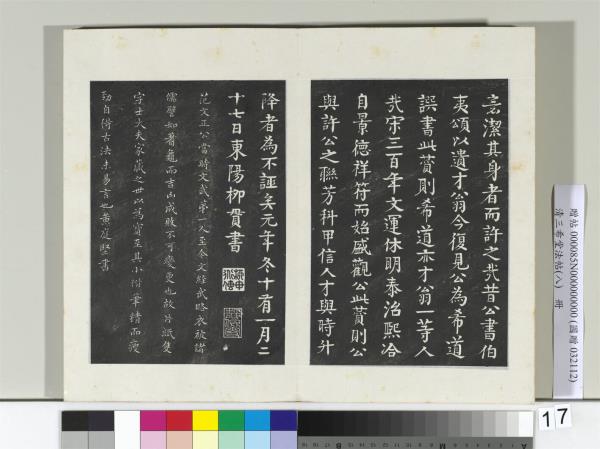 潔其身者而許之哉昔公書伯
夷頌以遺才翁今復見公為希道
譔書此贊則希道亦才翁一等人
哉宋三百年文運休明泰治熙洽
自景德祥符而始盛觀公此贊則公
與許公之聯芳科甲信人才與時升
降者為不誣矣元年冬十有一月二
十七日東陽柳貫書
范文正公當時文武第一人至今文經武略衣被諸
儒譬如蓍龜而吉凶成敗不可變更也故片紙隻
字士大夫家藏之世以為寶至其小楷筆精而瘦
勁自得古法未易言也黃庭堅書
贈帖 000085N000000000 (國贈 032112)
清三希堂法帖(八) 冊
17